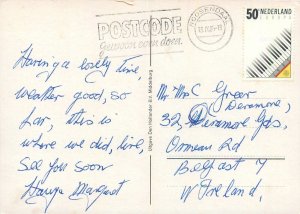 POSTCODE
Gewoon even doen.
ROOSENDAAL
50 NEDERLAND
Having a lovely time,
weather good, so
far, this is
where we did live,
see you soon
Margaret
Uitgave Den Hollander B.V. Middelburg
Mr Mrs C Greer
Deramore,
32, Deramore Gds,
Ormeau Rd
Belfast 7
N Ireland.